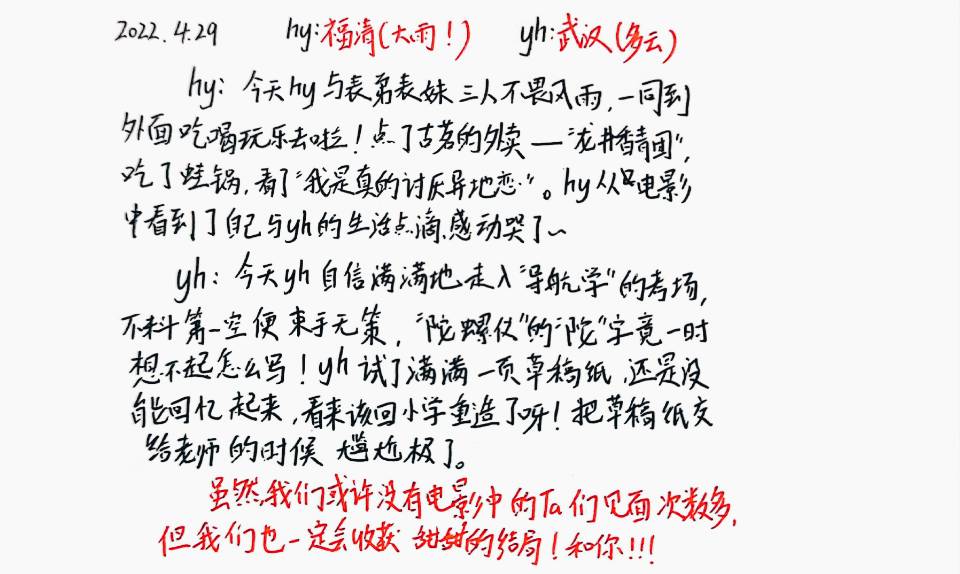 2022.4.29 hy:福清(大雨!) yh:武汉(多云)
hy: 今天hy与表弟表妹三人不畏风雨,一同到
外面吃喝玩乐去啦!点了古茗的外卖—“龙井香青团”,
吃了蛙锅,看了“我是真的讨厌异地恋”。hy从电影
中看到了自己与yh的生活点滴,感动哭了~
yh: 今天yh自信满满地走入“导航学”的考场,
不料第一空便束手无策,“陀螺仪”的“陀”字竟一时
想不起怎么写!yh试了满满一页草稿纸,还是没
能回忆起来,看来该回小学重造了呀!把草稿纸交
给老师的时候尴尬极了。
虽然我们或许没有电影中的Ta们见面次数多,
但我们也一定会收获甜甜的结局!和你!!!